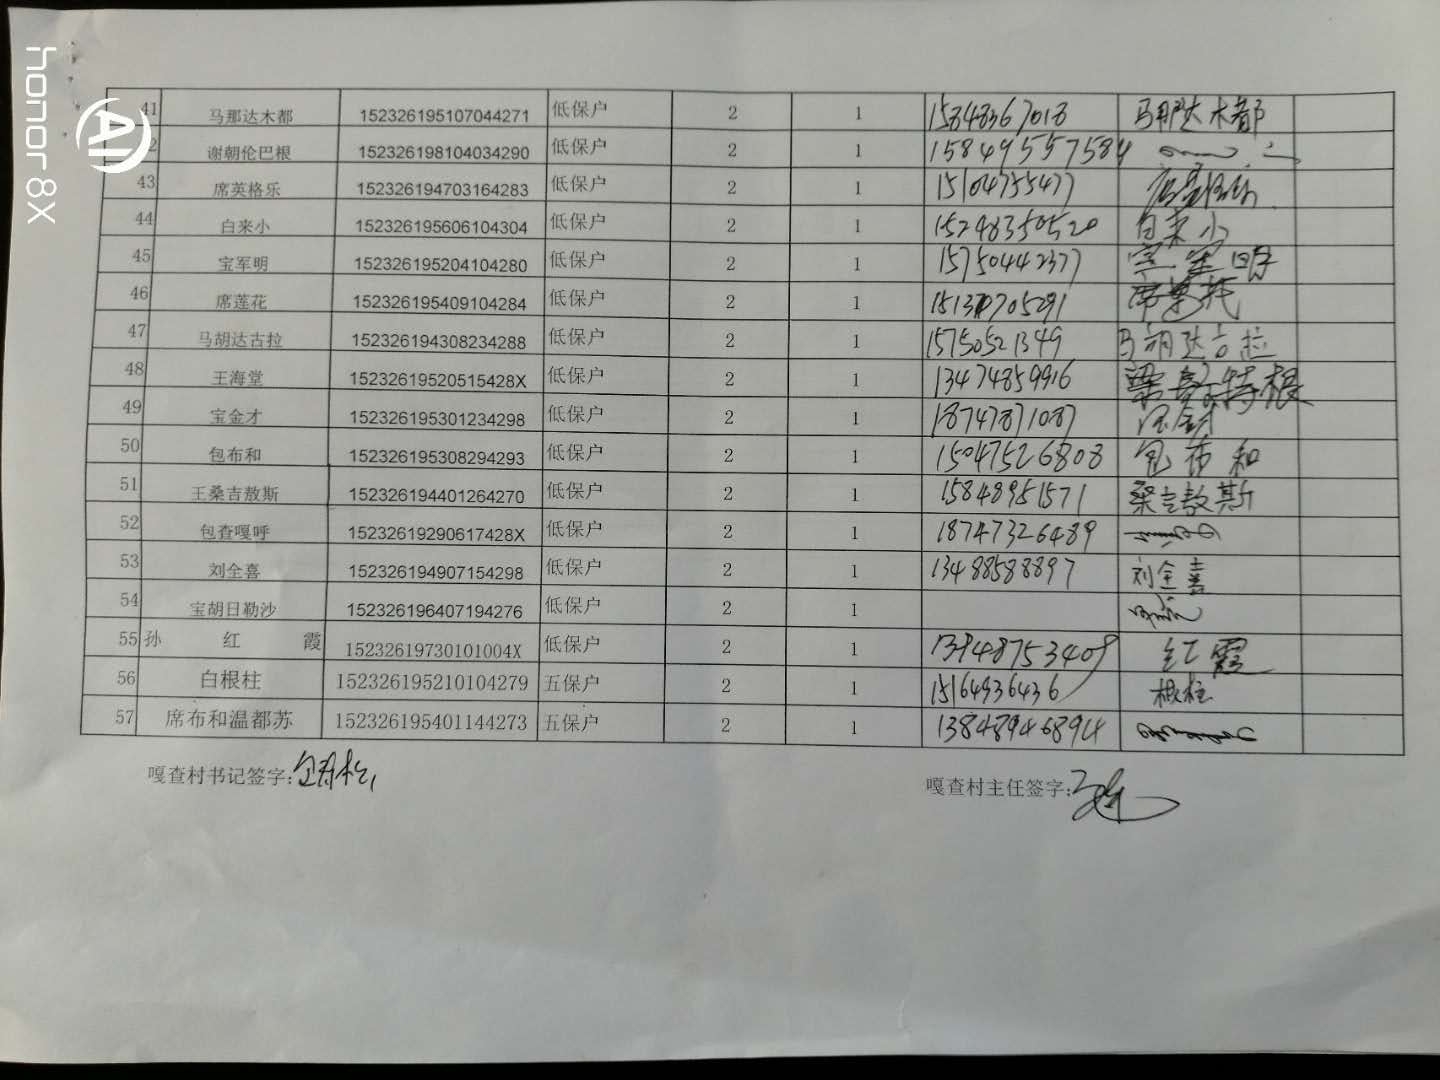 honor 8X
AI
41 马那达木都 152326195107044271 低保户 2 1 15848367018 马那达木都
2 谢朝伦巴根 152326198104034290 低保户 2 1 15849557584
43 席英格乐 152326194703164283 低保户 2 1 15104755477
44 白来小 152326195606104304 低保户 2 1 15248350520 白来小
45 宝军明 152326195204104280 低保户 2 1 15750442377 宝军明
46 席莲花 152326195409104284 低保户 2 1
47 马胡达古拉 152326194308234288 低保户 2 1 15750521349 马胡达古拉
48 王海堂 15232619520515428X 低保户 2 1 13474859916 梁 特根
49 宝金才 152326195301234298 低保户 2 1 18747871087
50 包布和 152326195308294293 低保户 2 1 15047526808 包布和
51 王桑吉敖斯 152326194401264270 低保户 2 1 15848951571 桑吉敖斯
52 包查嘎呼 15232619290617428X 低保户 2 1 18747326489
53 刘全喜 152326194907154298 低保户 2 1 13488588897 刘全喜
54 宝胡日勒沙 152326196407194276 低保户 2 1
55 孙红霞 15232619730101004X 低保户 2 1 13948753409 红霞
56 白根柱 152326195210104279 五保户 2 1 15164936436 根柱
57 席布和温都苏 152326195401144273 五保户 2 1 13848946894
嘎查村书记签字: 嘎查村主任签字: